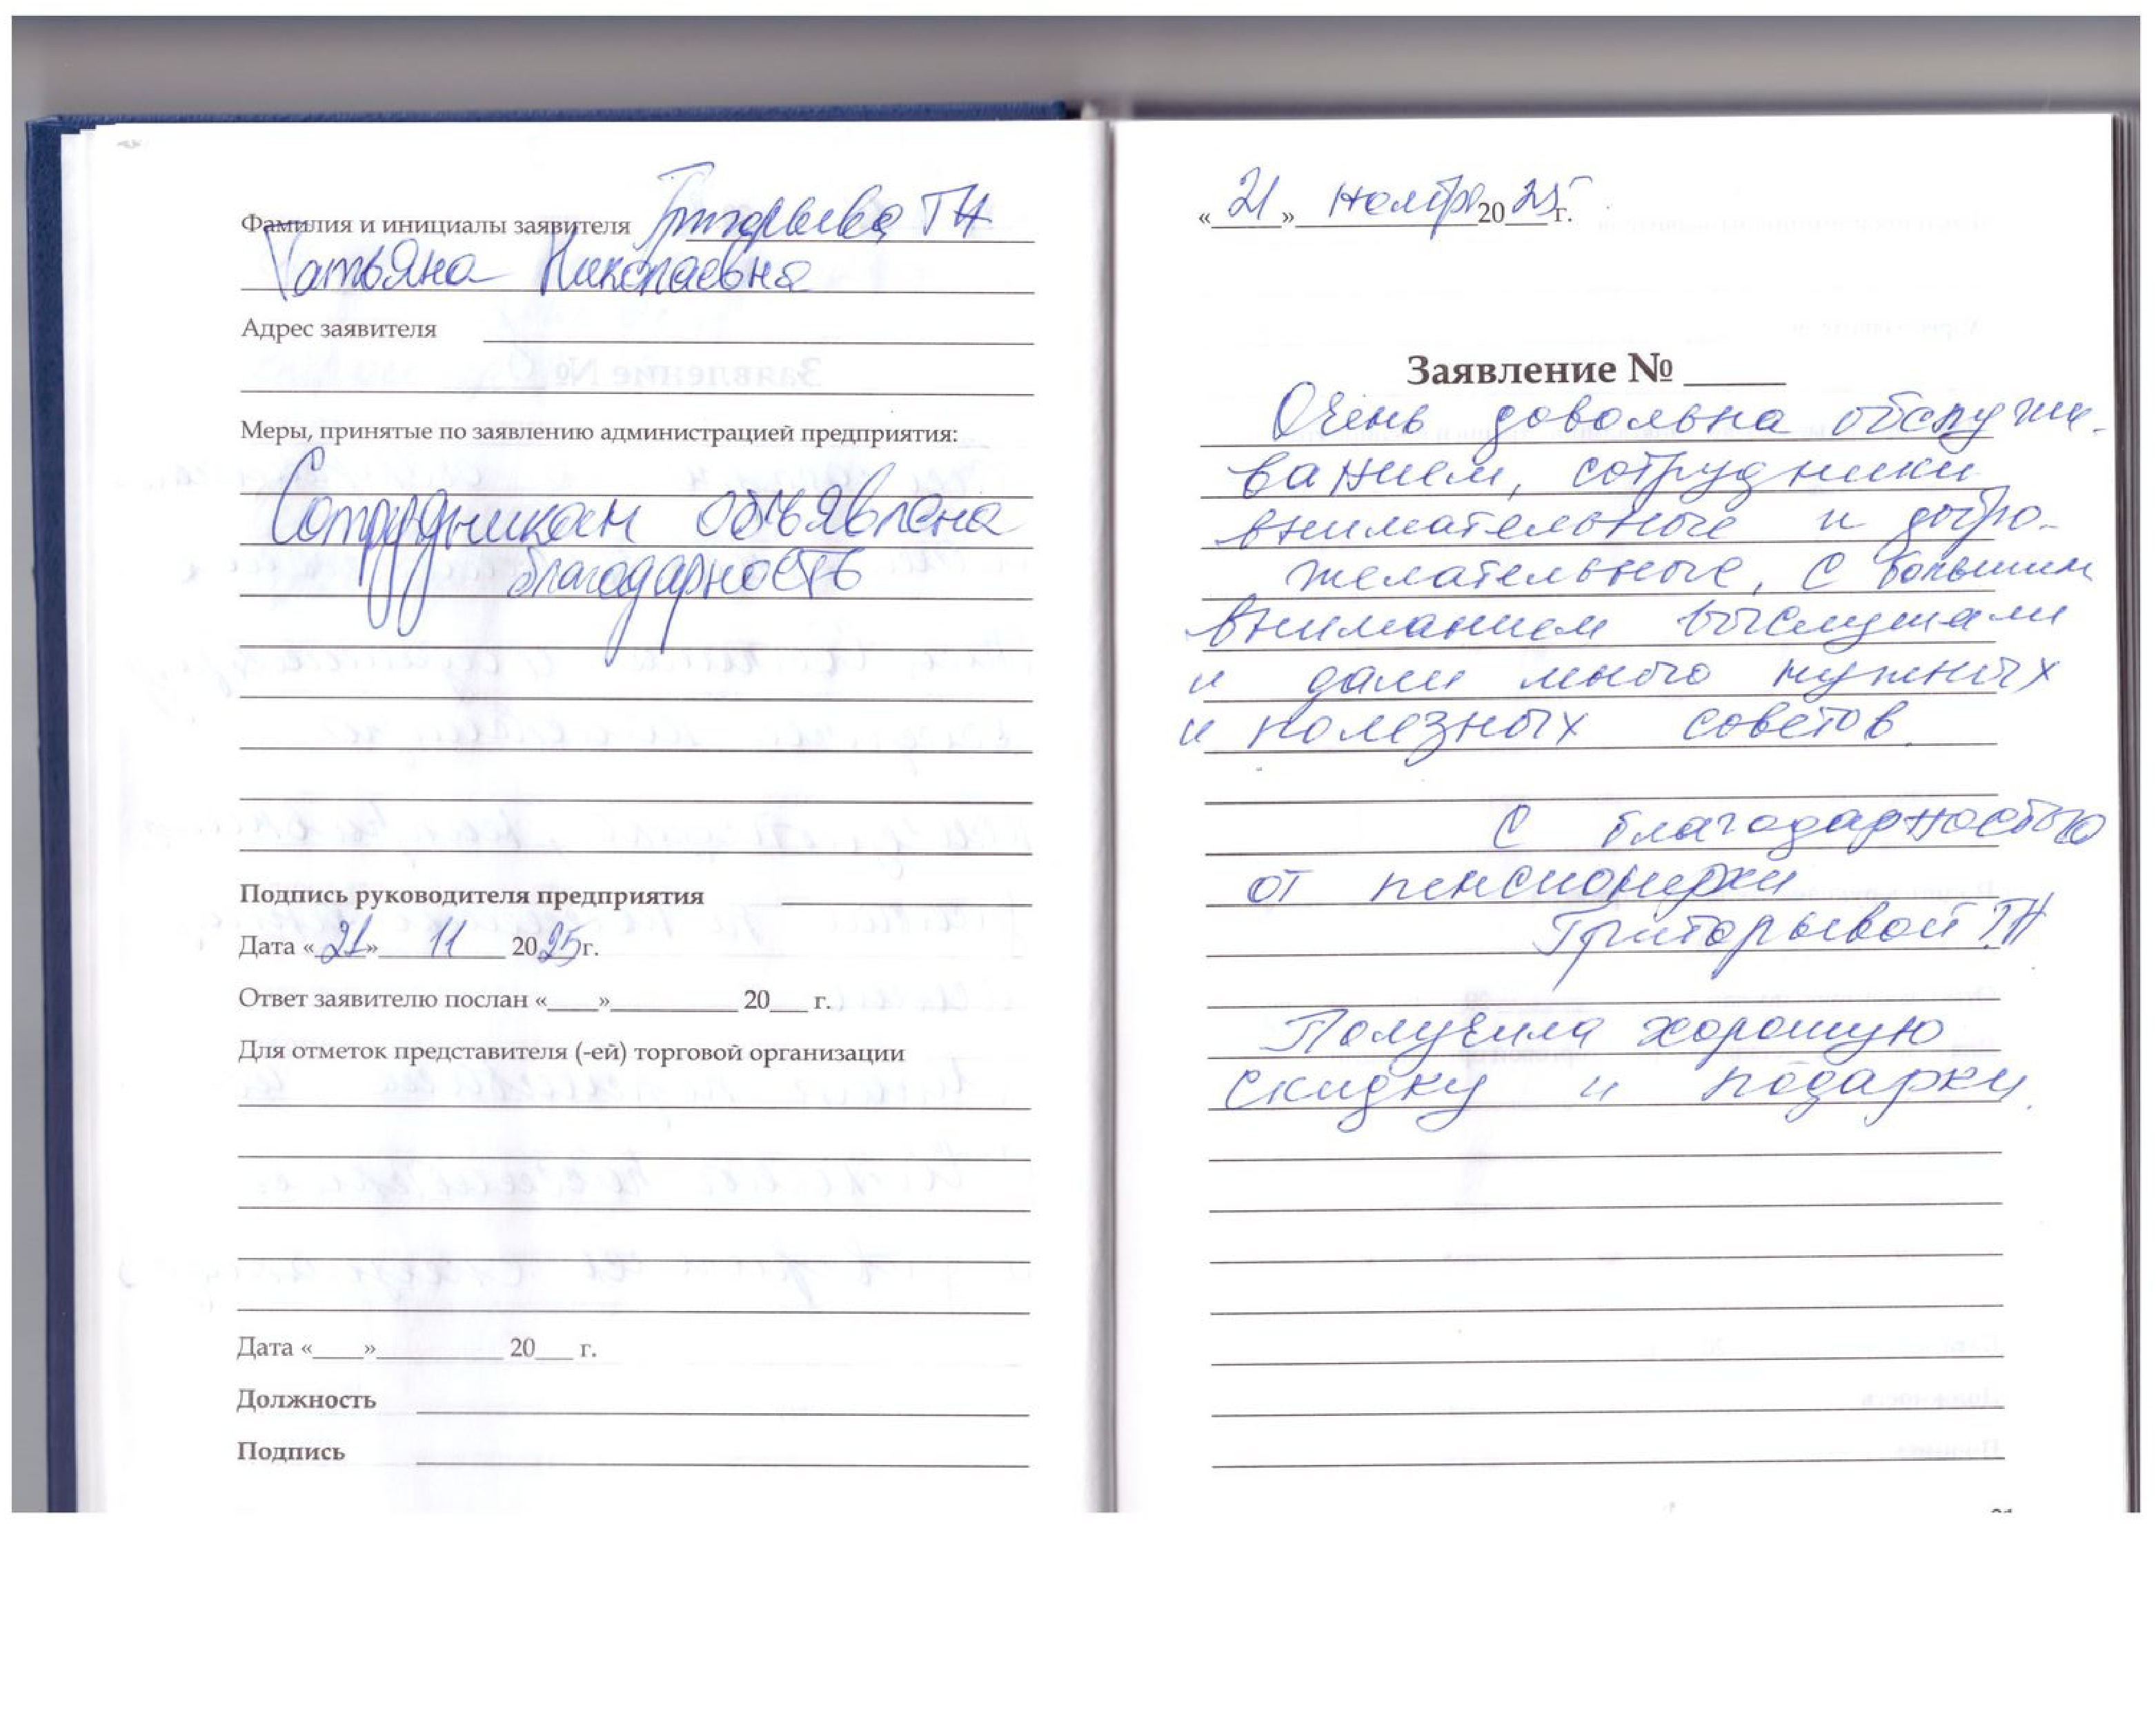 Фамилия и инициалы заявителя Григорьева ТН
Татьяна Николаевна
Адрес заявителя
Меры, принятые по заявлению администрацией предприятия:
Сотрудникам объявлена
благодарность
Подпись руководителя предприятия
Дата «21» 11 2025г.
Ответ заявителю послан «____»__________ 20___ г.
Для отметок представителя (-ей) торговой организации
Дата «____»__________ 20___ г.
Должность
Подпись
«21» ноября 2025г.
Заявление № _____
Очень довольна обслужи-
ванием, сотрудники
внимательные и добро-
желательные, с большим
вниманием выслушали
и дали много нужных
и полезных советов.
С благодарностью
от пенсионерки
Григорьевой ТН
Получила хорошую
скидку и подарки.